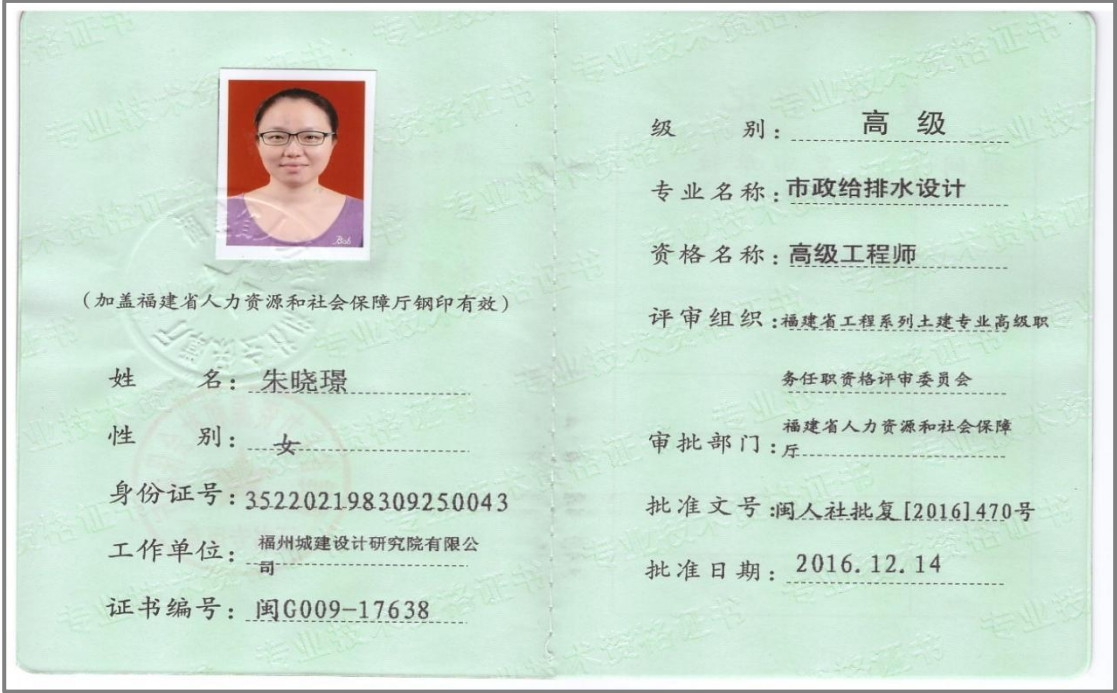 (加盖福建省人力资源和社会保障厅钢印有效)
姓 名：朱晓璟
性 别：女
身份证号：352202198309250043
工作单位：福州城建设计研究院有限公
司
证书编号：闽G009-17638
级 别：高 级
专业名称：市政给排水设计
资格名称：高级工程师
评审组织：福建省工程系列土建专业高级职
务任职资格评审委员会
审批部门：福建省人力资源和社会保障
厅
批准文号：闽人社批复[2016]470号
批准日期：2016.12.14
专业技术资格证书